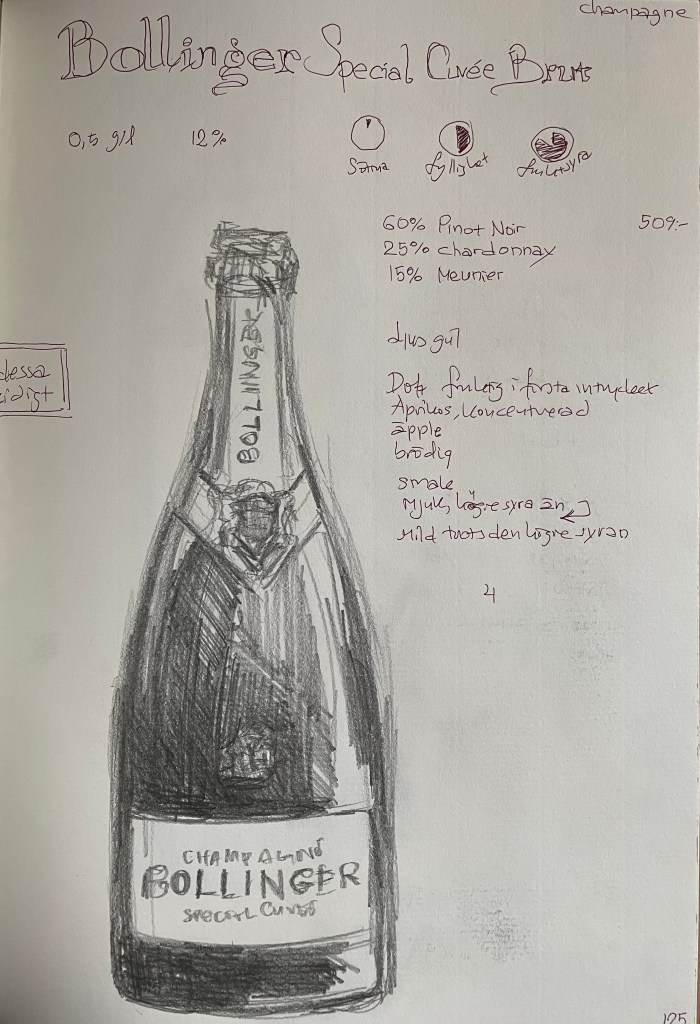 champagne
Bollinger Special Cuvée Brut
0,5 g/l 12%
Sötma fyllighet fruktsyra
60% Pinot Noir 509:-
25% chardonnay
15% Meunier
ljus gul
dessa
Doft fruktig i första intrycket
Aprikos, koncentrerad
äpple
brödig
smak
Mjuk, högre syra än
Mild trots den högre syran
4
BOLLINGER
CHAMPAGNE
BOLLINGER
SPECIAL CUVÉE
125